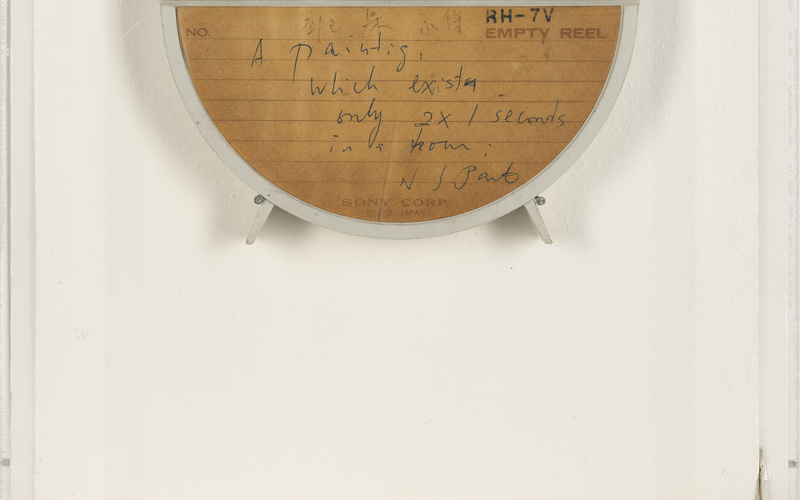 RH-7V
NO. EMPTY REEL
A paintig,
which exists
only 2x1 seconds
in a hour:
N J. Paik
SONY CORP.
TOKYO JAPAN